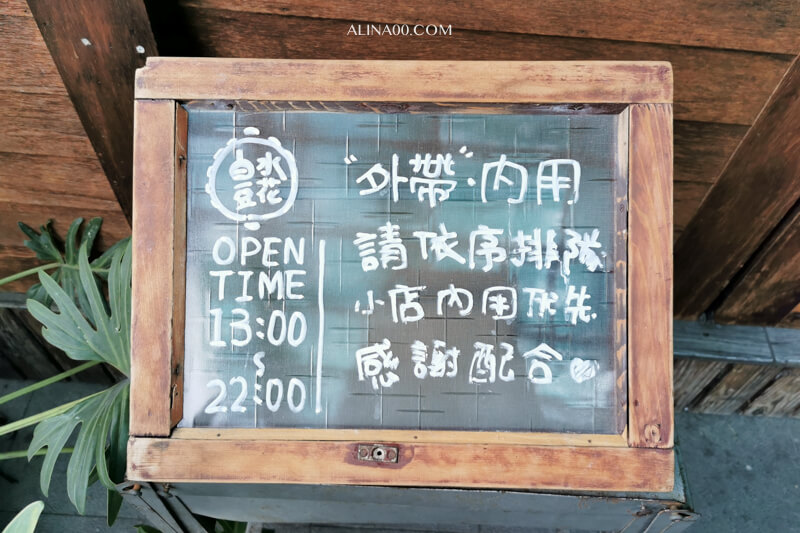 ALINA00.COM
白水
豆花
OPEN
TIME
13:00
~
22:00
"外帶"·內用
請依序排隊
小店內用优先
感謝配合♡